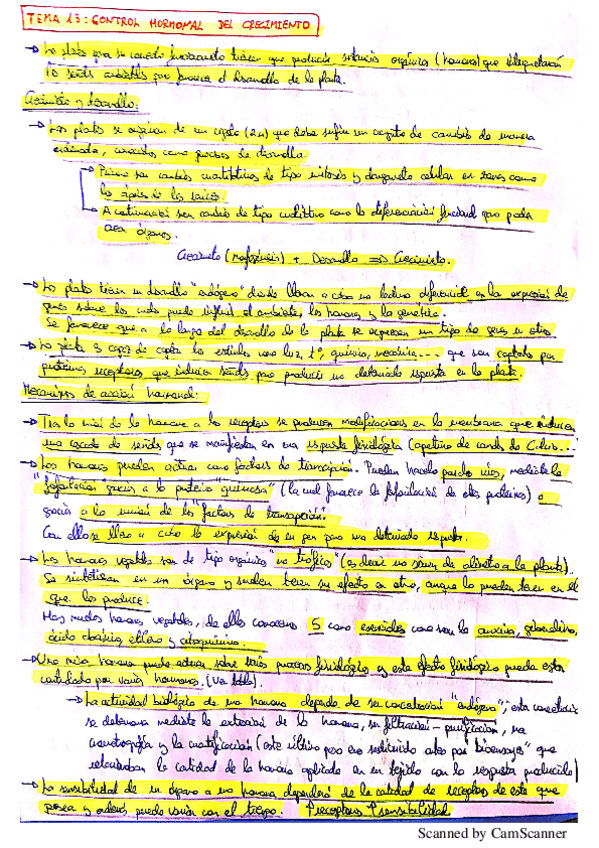 TEMA 13: CONTROL HORMONAL DEL CRECIMIENTO
→ La planta para su correcto funcionamiento tienen que producir sustancias orgánicas (hormonas) que interpretarán
las señales ambientales para favorecer el desarrollo de la planta.
Crecimiento y desarrollo:
→ Las plantas se originan de un cigoto (2n) que debe sufrir un conjunto de cambios de manera
ordenada, conocidos como procesos de desarrollo.
→ Primero son cambios cuantitativos de tipo mitosis y alargamiento celular en zonas como
los ápices de las raíces.
→ A continuación son cambios de tipo cualitativo como la diferenciación funcional para poder
crear órganos.
Crecimiento (morfogénesis) + Desarrollo ⇒ Crecimiento.
→ Las plantas tienen un desarrollo "endógeno" donde llevan a cabo una lectura diferencial en la expresión de
genes sobre los cuales puede influir el ambiente, las hormonas y la genética.
Se favorece que a lo largo del desarrollo de la planta se expresen un tipo de genes u otros
→ La planta es capaz de captar los estímulos como luz, tª, químicos, mecánica... que son captados por
proteínas receptoras que inducen señales para producir una determinada respuesta en la planta.
Mecanismos de acción hormonal:
→ Tras la unión de la hormona a los receptores se producen modificaciones en la membrana que inducen
una cascada de señales que se manifiestan en una respuesta fisiológica (apertura de canales de Calcio...)
→ Las hormonas pueden actuar como factores de transcripción. Pueden hacerlo mediante la
"fosforilación" gracias a la proteína "quinasa" (la cual favorece la fosforilación de otras proteínas) o
gracias a la unión de los "factores de transcripción".
Con ello se lleva a cabo la expresión de un gen para una determinada respuesta.
→ Las hormonas vegetales son de tipo orgánico "no trófico" (es decir no sirven de alimento a la planta).
Se sintetizan en un órgano y suelen tener su efecto en otro, aunque lo pueden tener en el
que las produce.
Hay muchas hormonas vegetales, de ellas conocemos 5 como esenciales como son la auxina, giberelina,
ácido abscísico, etileno y citoquinina.
→ Una misma hormona puede actuar sobre varios procesos fisiológicos y este efecto fisiológico puede estar
controlado por varias hormonas. (Ver tabla).
→ La actividad biológica de una hormona depende de su concentración "endógena"; esta concentración
se determina mediante la extracción de la hormona, su filtración-purificación, una
cromatografía y la cuantificación (este último paso era sustituido antes por "bioensayos" que
relacionaban la cantidad de la hormona aplicada en un tejido con la respuesta producida)
→ La sensibilidad de un órgano a una hormona dependerá de la cantidad de receptores de este que
posea y además puede variar con el tiempo. ↑receptores ↑sensibilidad
Scanned by CamScanner